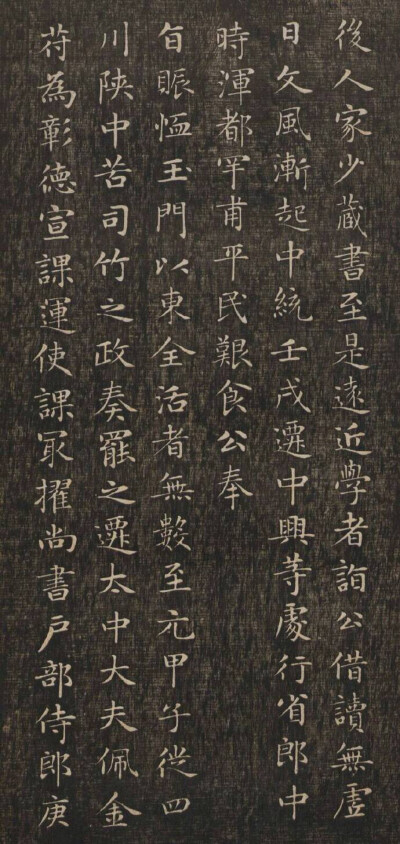 後人家少藏書至是遠近學者詢公借讀無虛
日文風漸起中統壬戌遷中興等處行省郎中
時渾都罕甫平民艱食公奉
旨賑恤玉門以東全活者無數至元甲子從四
川陝中苦司竹之政奏罷之遷太中大夫佩金
苻為彰德宣課運使課冣擢尚書户部侍郎庚